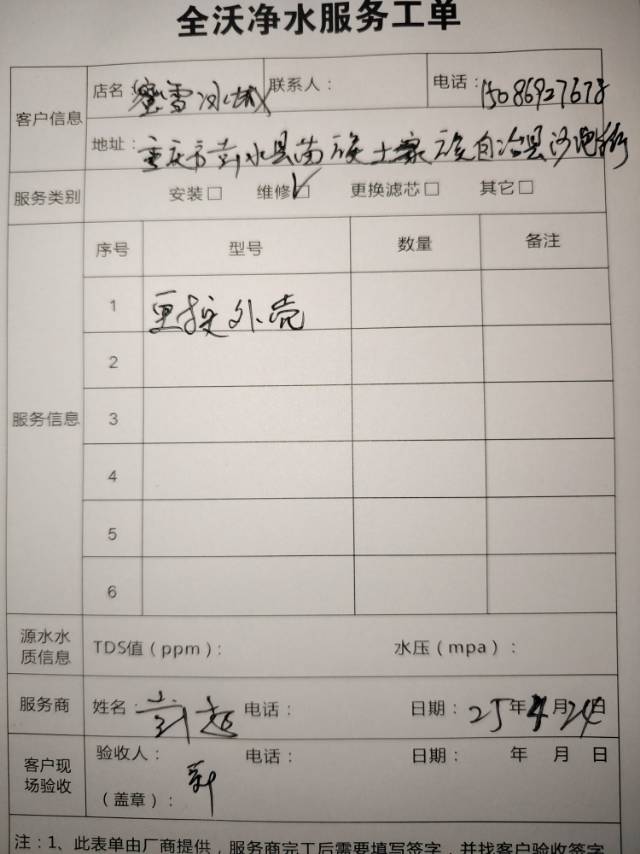 全沃净水服务工单
客户信息 店名：蜜雪冰城 联系人： 电话：15086927678
地址：重庆市彭水县苗族土家族自治县沙沱街
服务类别 安装□ 维修☑ 更换滤芯□ 其它□
服务信息 序号 型号 数量 备注
1 更换外壳
2
3
4
5
6
源水水质信息 TDS值（ppm）： 水压（mpa）：
服务商 姓名： 电话： 日期：25年4月24日
客户现场验收 验收人： 电话： 日期： 年 月 日
（盖章）：
注：1、此表单由厂商提供，服务商完工后需要填写签字，并找客户验收签字